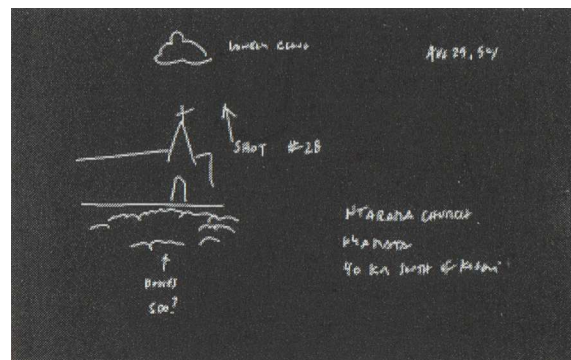 LONELY CLOUD
AUG 29,
SHOT #28
NTARAMA CHURCH
NYAMATA
40 KM SOUTH OF KIGALI
BODIES
500?